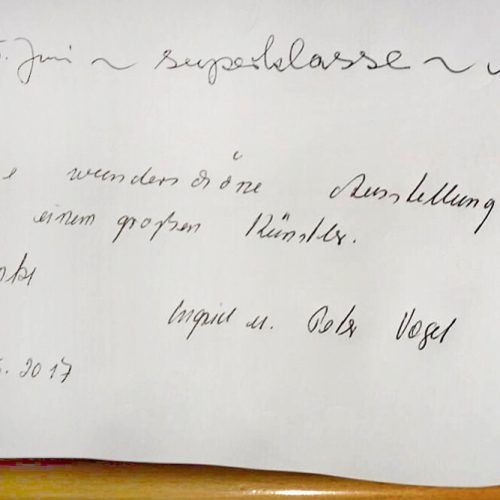 . Juni ~ superklasse ~
e wunderschöne Ausstellung
einem großen Künstler.
Ingrid u. Peter Vogel
. 2017